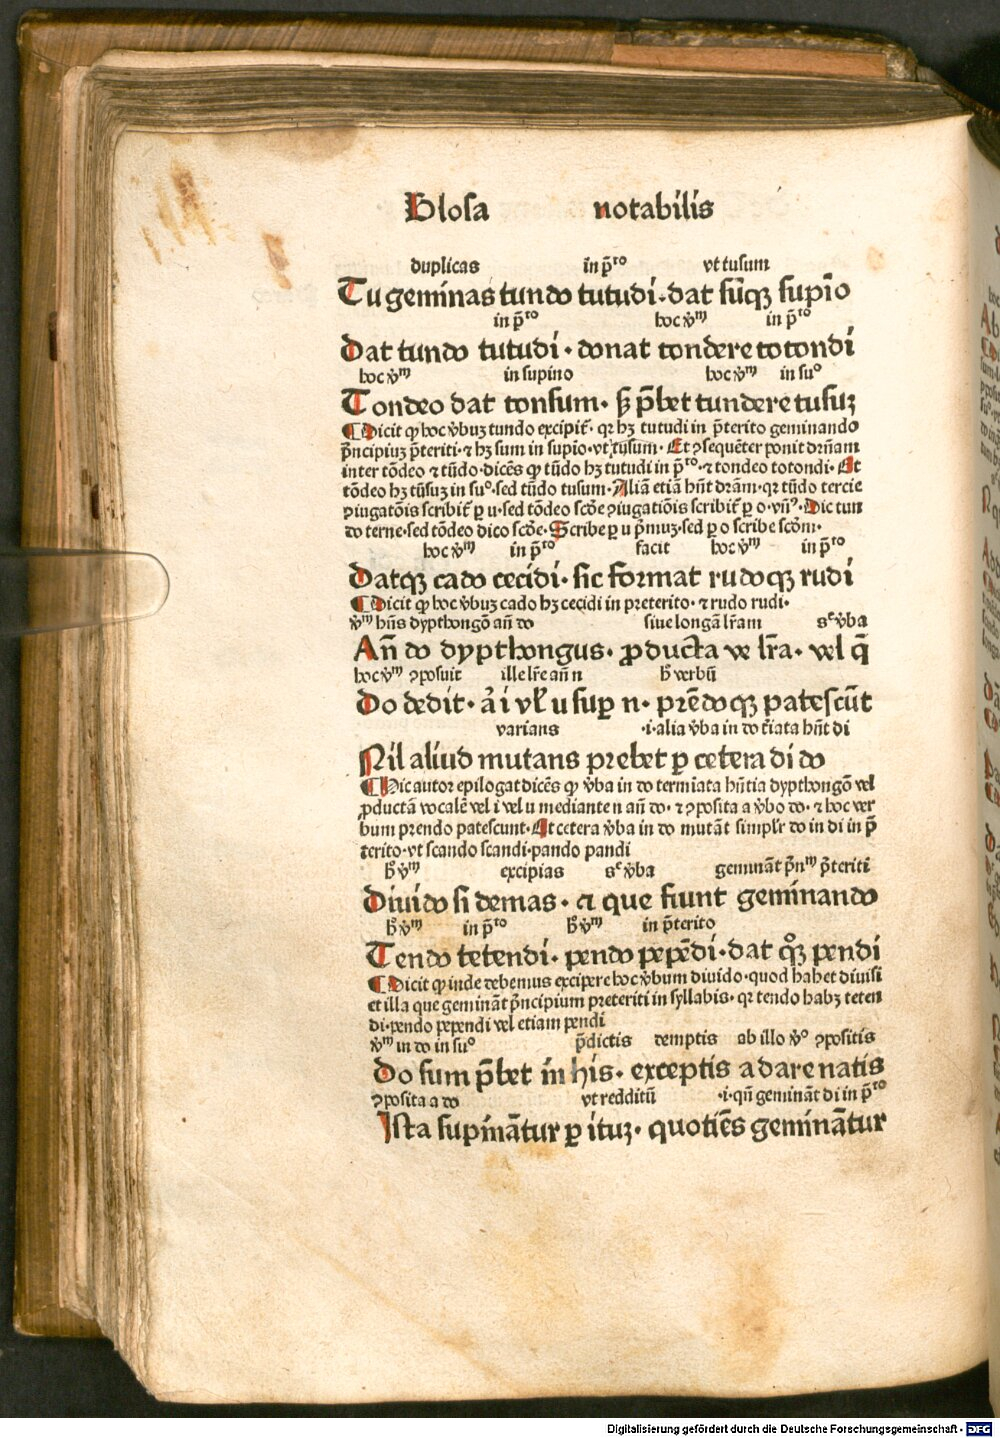 Glosa notabilis
duplicas in p̄ᵗᵒ vt tusum
Tu geminas tundo tutudi·dat sūqꝫ supīo
in p̄ᵗᵒ hoc v̄ᵐ in p̄ᵗᵒ
Dat tundo tutudi·donat tondere totondi
hoc v̄ᵐ in supino hoc v̄ᵐ in suᵒ
Tondeo dat tonsum·sꝫ p̄bet tundere tusuꝫ
¶Dicit ꝙ hoc v̄buꝫ tundo excipit̄·qꝛ hꝫ tutudi in p̄terito geminando
p̄ncipiuꝫ p̄teriti·⁊ hꝫ sum in supīo·vt tusum·Et ꝯsequēter ponit dr̄nam
inter tōdeo ⁊ tūdo·dicēs ꝙ tūdo hꝫ tutudi in p̄ᵗᵒ·⁊ tondeo totondi·Et
tōdeo hꝫ tūsuꝫ in suᵒ·sed tūdo tusum·Aliā etiā hn̄t dr̄am·qꝛ tūdo tercie
ꝯiugatōis scribit̄ ꝑ u·sed tōdeo scd̄e ꝯiugatiōis scribit̄ ꝑ o·vn̄ꝰ·Dic tun
do terne·sed tōdeo dico scd̄e·Scribe ꝑ u p̄muꝫ·sed ꝑ o scribe scd̄m·
hoc v̄ᵐ in p̄ᵗᵒ facit hoc v̄ᵐ in p̄ᵗᵒ
Datqꝫ cado cecidi·sic format rudoqꝫ rudi
¶Dicit ꝙ hoc v̄buꝫ cado hꝫ cecidi in preterito·⁊ rudo rudi·
v̄ᵐ hn̄s dypthongō an̄ do siue longā lr̄am sᶜ v̄ba
An̄ do dypthongus·ꝓducta ve lr̄a·vel q̄
hoc v̄ᵐ ꝯposuit ille lr̄e an̄ n hͦ verbū
Do dedit·a̓ i vl̓ u suꝑ n·prēdoqꝫ patescūt
varians ·i·alia v̄ba in do t̄iata hn̄t di
Nil aliud mutans prebet ꝑ cetera di do
¶Hic autor epilogat dicēs ꝙ v̄ba in do termīata hn̄tia dypthongō vel
ꝓductā vocalē vel i vel u mediante n an̄ do·⁊ ꝯposita a v̄bo do·⁊ hoc ver
bum prendo patescunt·Et cetera v̄ba in do mutāt simpl̓r do in di in p̄
terito·vt scando scandi·pando pandi
hͦ v̄ᵐ excipias sᶜ v̄ba gemināt p̄nᵐ p̄teriti
Diuido si demas·⁊ que fiunt geminando
hͦ v̄ᵐ in p̄ᵗᵒ hͦ v̄ᵐ in p̄terito
Tendo tetendi·pendo pepēdi·dat qͦꝫ pendi
¶Dicit ꝙ inde debemus excipere hoc v̄bum diuido·quod habet diuisi
et illa que gemināt p̄ncipium preteriti in syllabis·qꝛ tendo habꝫ teten
di·pendo pependi vel etiam pendi
v̄ᵐ in do in suᵒ p̄dictis demptis ab illo v̄ᵒ ꝯpositis
Do sum p̄bet in his·exceptis a dare natis
ꝯposita a do vt redditū ·i·qn̄ gemināt di in p̄ᵗᵒ
Ista supinātur ꝑ ituꝫ·quotiēs geminātur
Digitalisierung gefördert durch die Deutsche Forschungsgemeinschaft - DFG